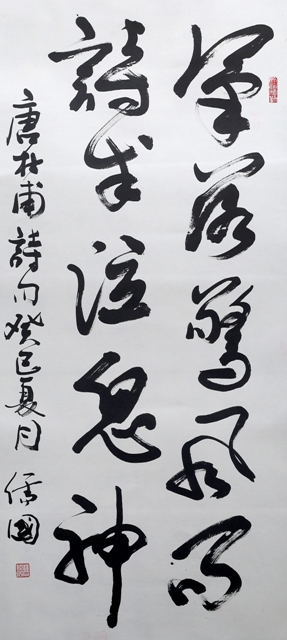 筆落驚風雨
詩成泣鬼神
唐杜甫詩句癸巳夏月儒國